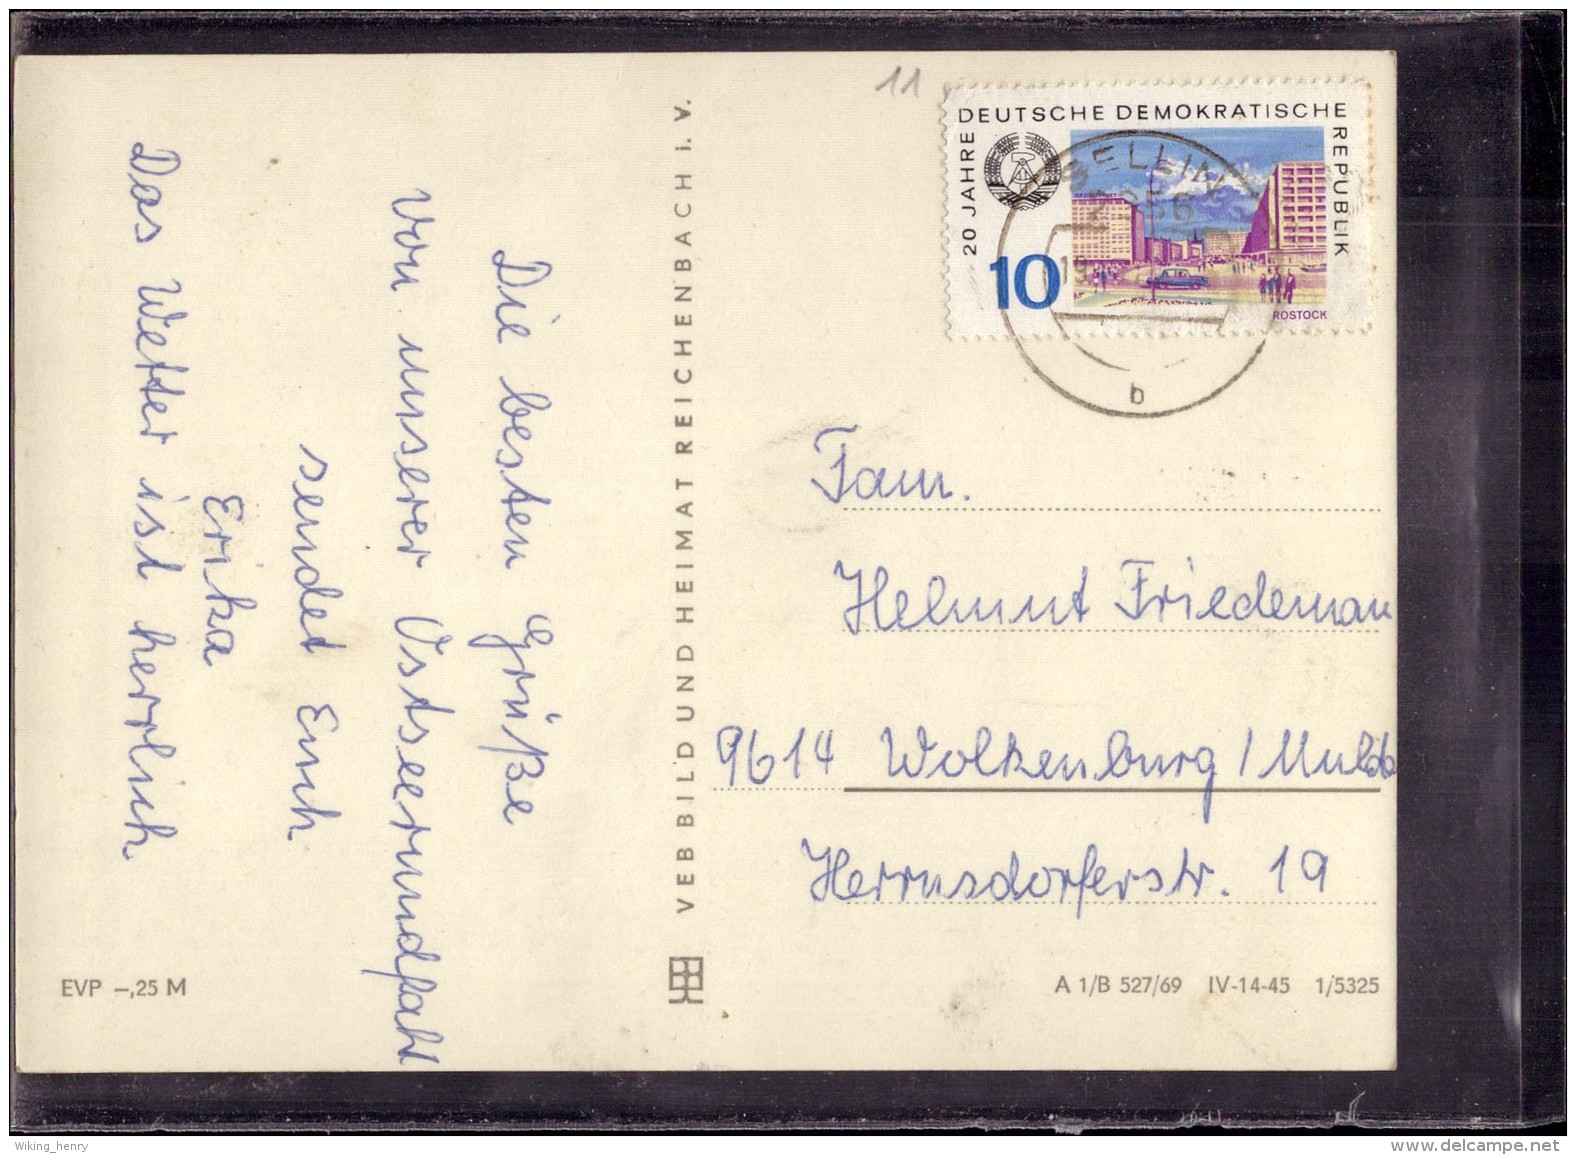 11
DEUTSCHE DEMOKRATISCHE
REPUBLIK
20 JAHRE
10
ROSTOCK
SELLIN
2356
b
Die besten Grüße
von unserer Ostseerundfaht
sendet Euch
Erika
Das Wetter ist herrlich
VEB BILD UND HEIMAT REICHENBACH i. V.
Fam.
Helmut Friedeman
9614 Wolkenburg / Mulde
Herrnsdorferstr. 19
EVP –,25 M
A 1/B 527/69 IV-14-45 1/5325
Wiking_henry
www.delcampe.net